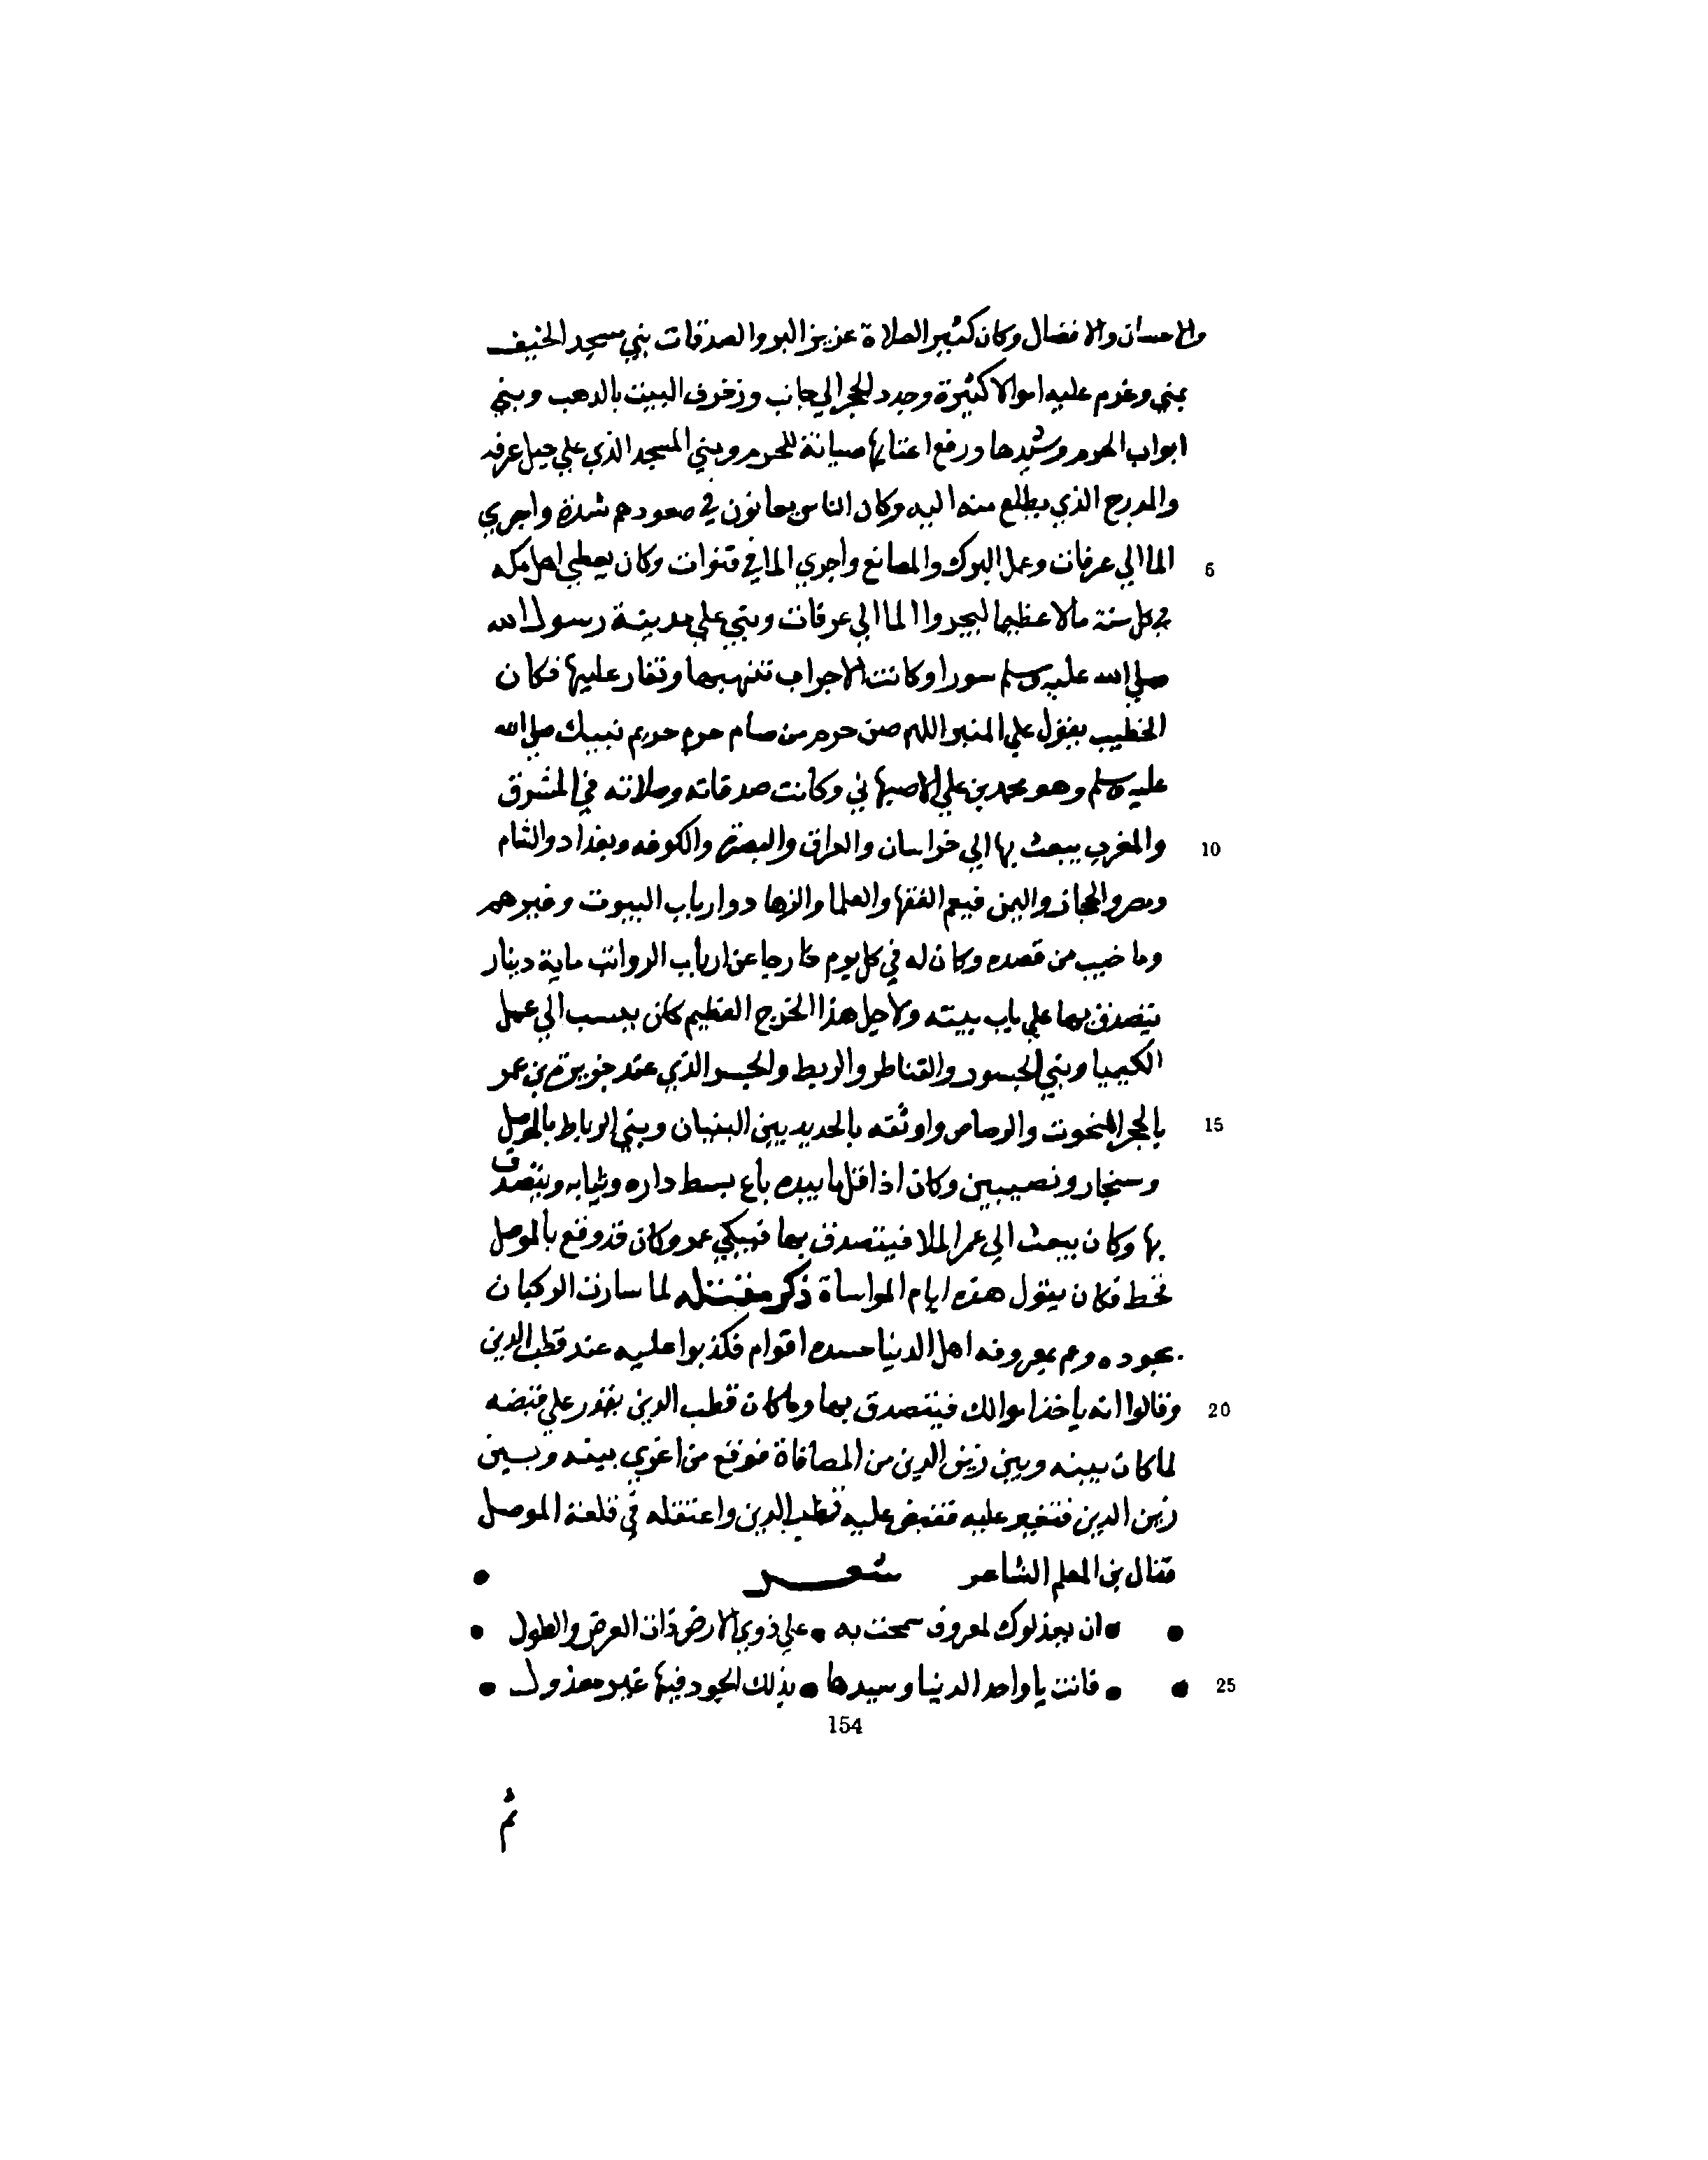 والاحسان والافضال وكان كثير الصلاة عزيز البر والصدقات بني مسجد الخيف
بمني وغرم عليه اموالا كثيرة وجدد للحجر الي جانب وزخرف البيت بالدهب وبني
ابواب الحرم وشيدها ورفع اعتابها صيانة للحرم وبني المسجد الذي علي جبل عرفه
والمدرج الذي يطلع منه اليه وكان الناس يعانون في صعودهم شدة واجري
5 الما الي عرفات وعمل البرك والمصانع واجري الما في قنوات وكان يعطي اهل مكه
في كل سنة مالا عظيما ليجروا الما الي عرفات وبني علي مدينة رسول الله
صلي الله عليه وسلم سورا وكانت الاعراب تنهبها وتغار عليها فكان
الخطيب يقول علي المنبر اللهم صن حرم من صام حرم حريم نبيك صلي الله
عليه وسلم وهو محمد بن علي الاصبهاني وكانت صدقاته وصلاته في المشرق
10 والمغرب يبعث بها الي خراسان والعراق والبصرة والكوفه وبغداد والشام
ومصر والحجاز واليمن فيعم الفقها والعلما والزهاد وارباب البيوت وغيرهم
وما خيب من قصده وكان له في كل يوم خارجا عن ارباب الرواتب ماية دينار
يتصدق بها علي باب بيته ولاجل هذا الخرج العظيم كان ينسب الي عمل
الكيميا وبني الجسور والقناطر والربط والجسر الذي عقد جزيرة بن عمر
15 بالحجر المنحوت والرصاص واوثقه بالحديد بين البنيان وبني الرباط بالموصل
وسنجار ونصيبين وكان اذا قل ما بيده باع بسط داره وثيابه ويتصدق
بها وكان يبعث الي عمر الملا فيتصدق بها فيبكي عمر وكان قد وقع بالموصل
قحط فكان يقول هذه ايام المواساة ذكر مقتله لما سارت الركبان
بجوده وعم بمعروفه اهل الدنيا حسده اقوام فكذبوا عليه عند قطب الدين
20 وقالوا انه ياخذ اموالك فيتصدق بها وما كان قطب الدين يقدر علي قبضه
لما كان بينه وبين زين الدين من المصافاة فوقع من اغري بينه وبين
زين الدين فتغير عليه فقبض عليه قطب الدين واعتقله في قلعة الموصل
فقال بن المعلم الشاعر شعر •
• • ان يعذلوك لمعروف سمحت به • علي ذوي الارض ذات العرض والطول •
25 • • فانت يا واحد الدنيا وسيدها • بذلك الجود فيها غير معذول •
154
ثم